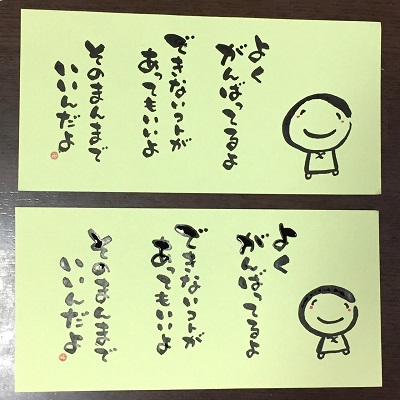 よく
がんばってるよ
できないコトが
あってもいいよ
そのまんまで
いいんだよ
よく
がんばってるよ
できないコトが
あってもいいよ
そのまんまで
いいんだよ